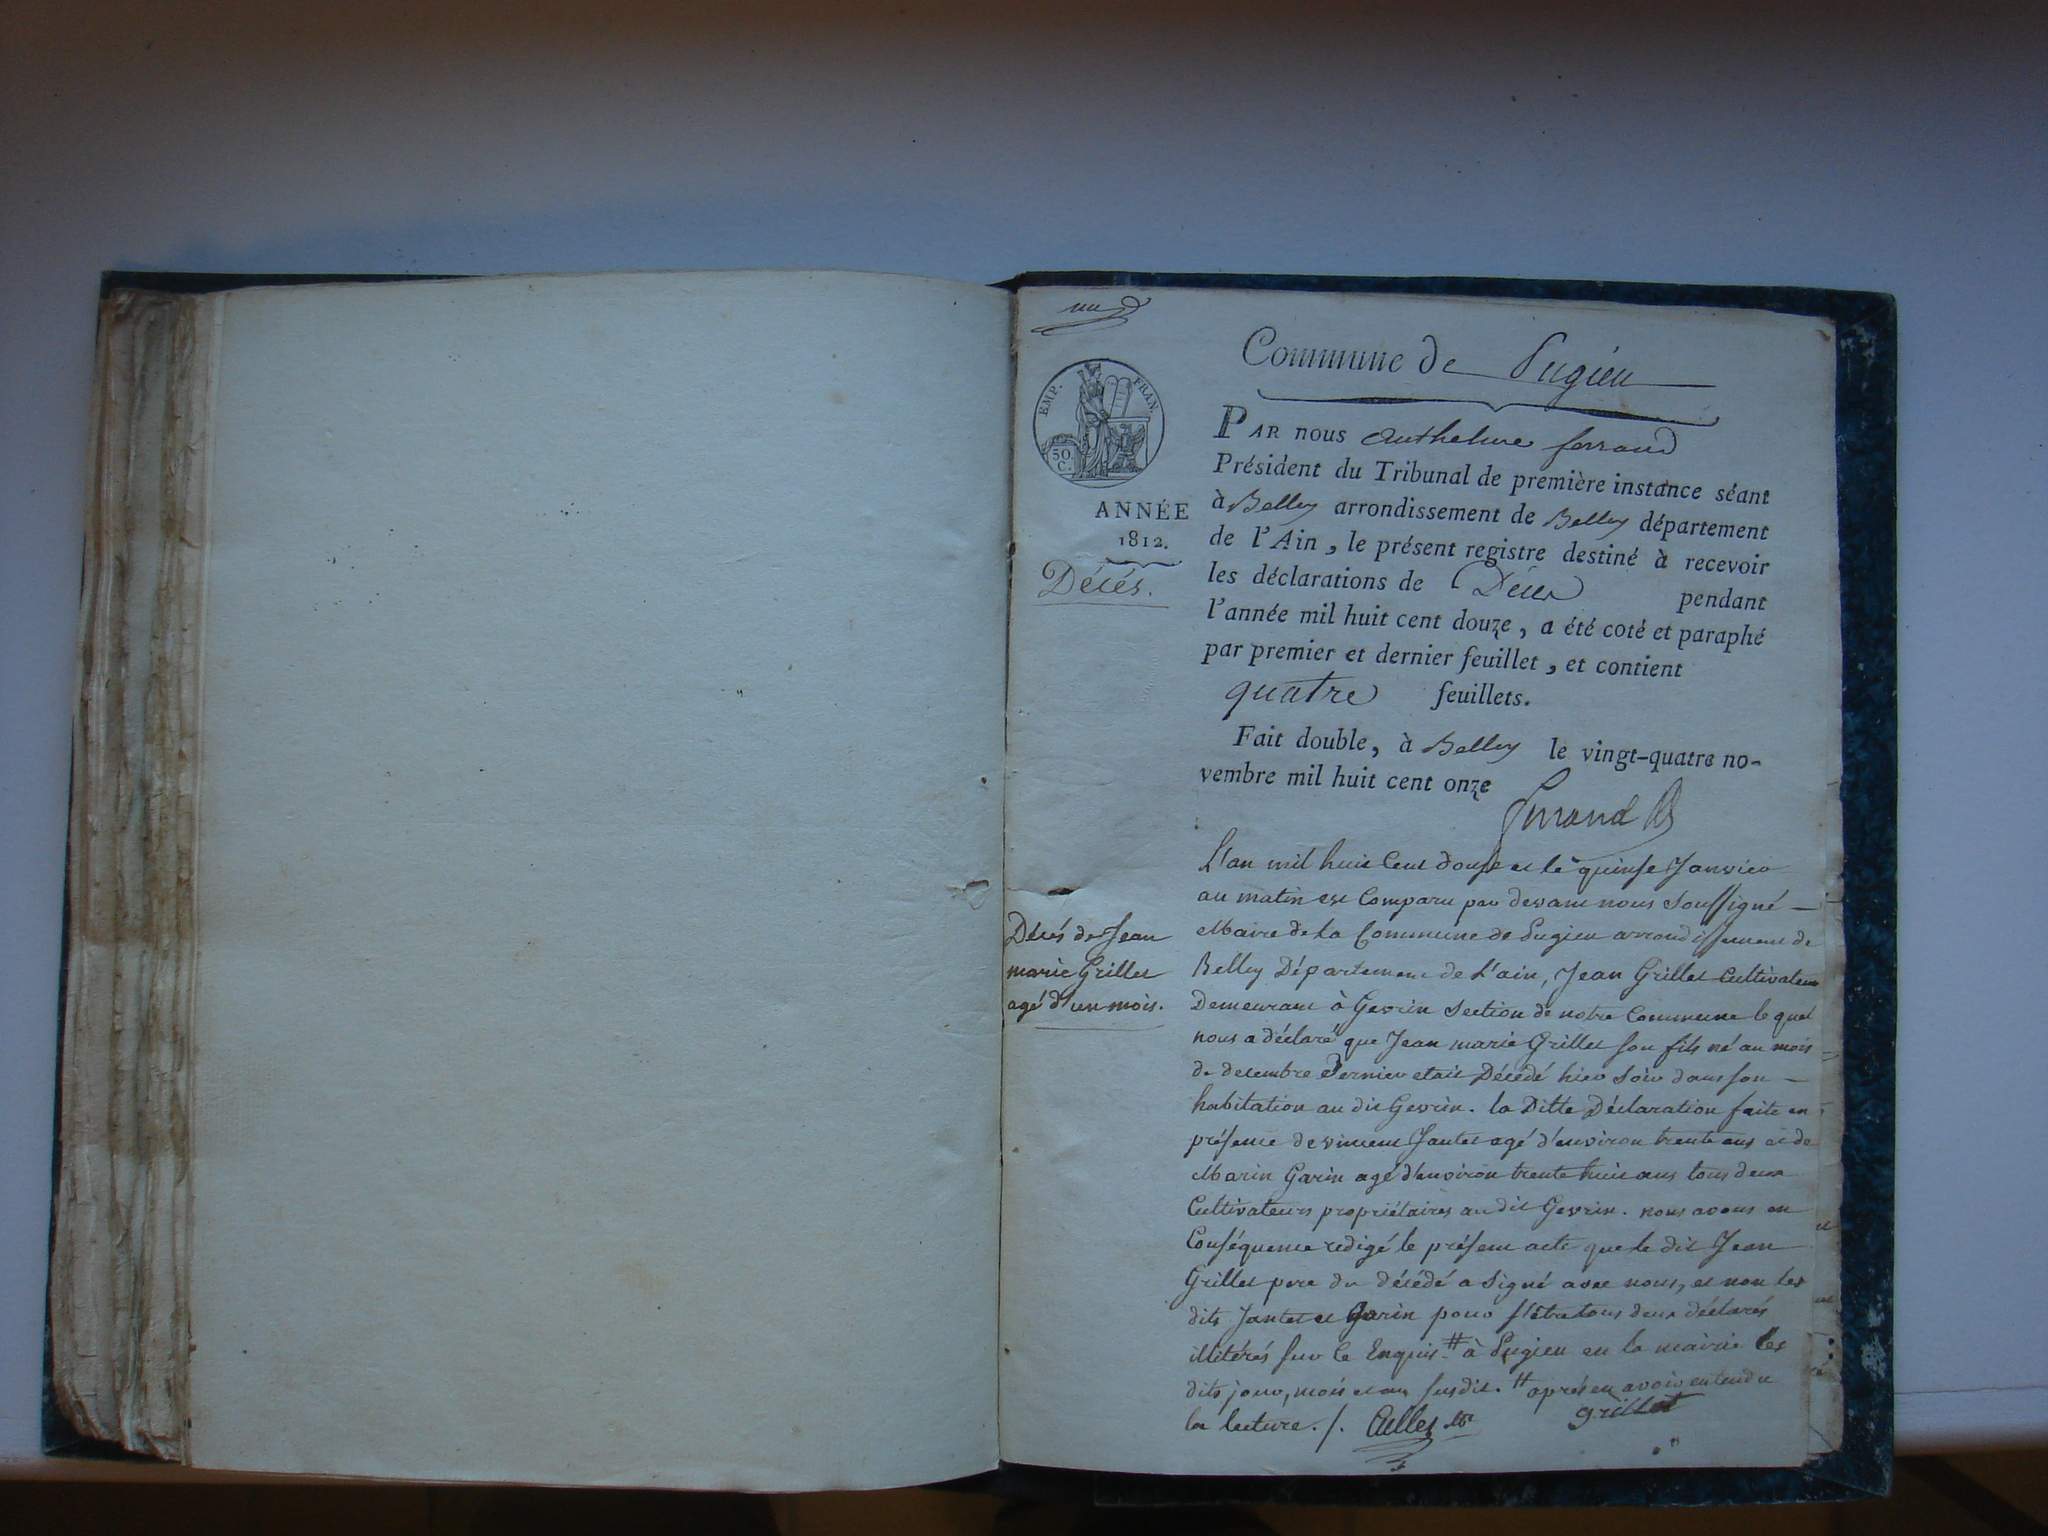 un
EMP. FRAN.
50.
C.
ANNÉE
1812.
Décés.
Commune de Pugieu
PAR nous Anthelme ferrand
Président du Tribunal de première instance séant
à Belley arrondissement de Belley département
de l'Ain, le présent registre destiné à recevoir
les déclarations de Décès pendant
l'année mil huit cent douze, a été coté et paraphé
par premier et dernier feuillet, et contient
quatre feuillets.
Fait double, à Belley le vingt-quatre no-
vembre mil huit cent onze
ferrand
Décés de Jean
marie Grillet
agé d'un mois.
L'an mil huit Cent douse et le quinse Janvier
au matin est Comparu par devant nous Soussigné
Maire de la Commune de Pugieu arrondissement de
Belley Département de L'ain, Jean Grillet Cultivateur
Demeurant à Gevrin Section de notre Commune le quel
nous a déclaré que Jean marie Grillet son fils né au mois
de decembre Dernier etait Décédé hier Soir dans son
habitation au dit Gevrin. la Ditte Déclaration faite en
présence de vincent Jantet agé d'environ trente ans et de
Marin Garin agé d'environ trente huit ans tous deux
Cultivateurs propriétaires au dit Gevrin. nous avons en
Conséquence redigé le présent acte que le dit Jean
Grillet pere du décédé a Signé avec nous, et non les
dits Jantet et Garin pour s'être tous deux déclarés
illitérés sur ce Enquis # à Pugieu en la mairie les
dits jour, mois et an susdit. # aprés en avoir entendu
la lecture ./. grillet